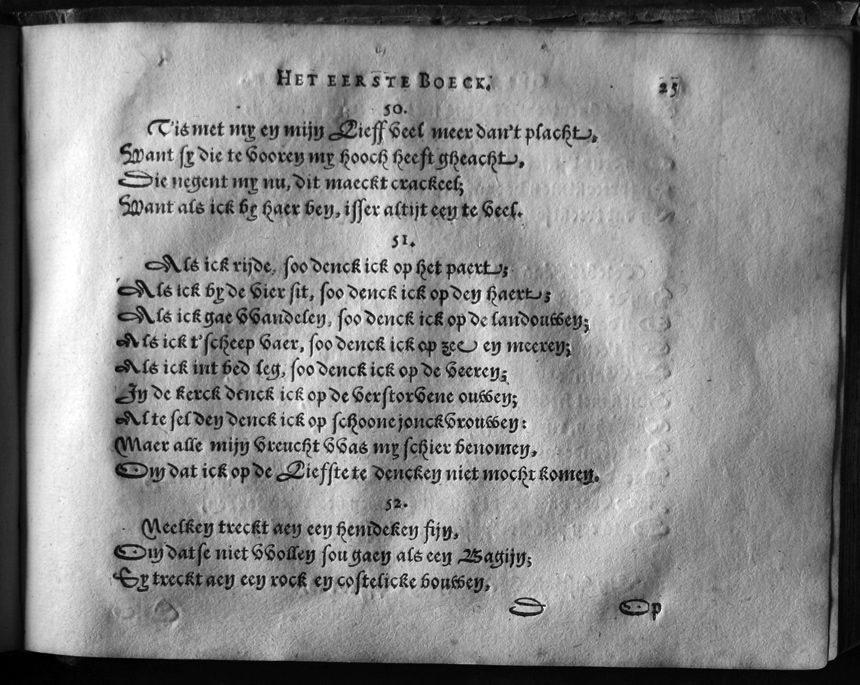 HET EERSTE BOECK.
25
50.
Tis met my en mijn Lieff veel meer dan't placht,
Want sy die te vooren my hooch heeft gheacht,
Die negent my nu, dit maeckt crackeel;
Want als ick by haer ben, isser altijt een te veel.
51.
Als ick rijde, soo denck ick op het paert;
Als ick by de vier sit, soo denck ick op den haert;
Als ick gae vvandelen, soo denck ick op de landouwen;
Als ick t'scheep vaer, soo denck ick op zee en meeren;
Als ick int bed leg, soo denck ick op de veeren;
In de kerck denck ick op de verstorvene ouwen;
Al te selden denck ick op schoone jonckvrouwen:
Maer alle mijn vreucht vvas my schier benomen,
Om dat ick op de Liefste te dencken niet mocht komen.
52.
Neelken treckt aen een hemdeken fijn,
Om datse niet vvollen sou gaen als een Bagijn;
Sy treckt aen een rock en costelicke bouwen,
D Op